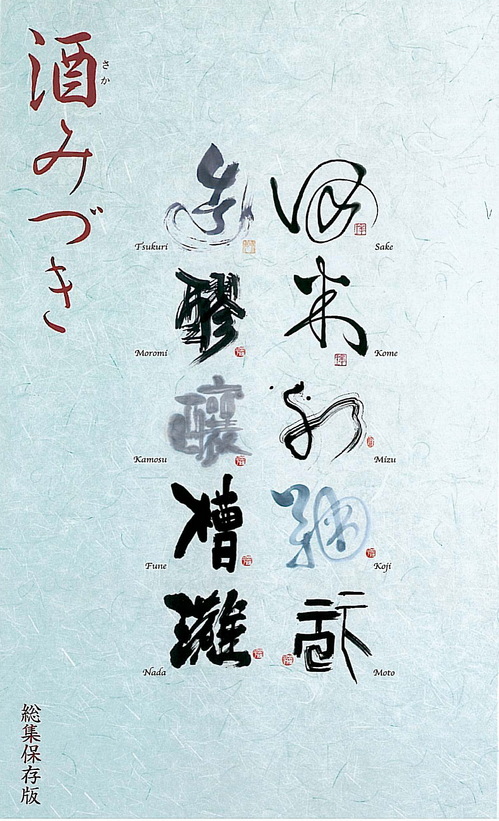 酒みづき
さか
酒
Sake
米
Kome
水
Mizu
麹
Koji
酛
Moto
造
Tsukuri
醪
Moromi
醸
Kamosu
槽
Fune
灘
Nada
総集保存版